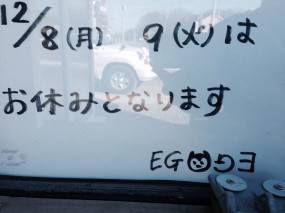 12/8(月)、9(火)は
お休みとなります
EGᘐヨ